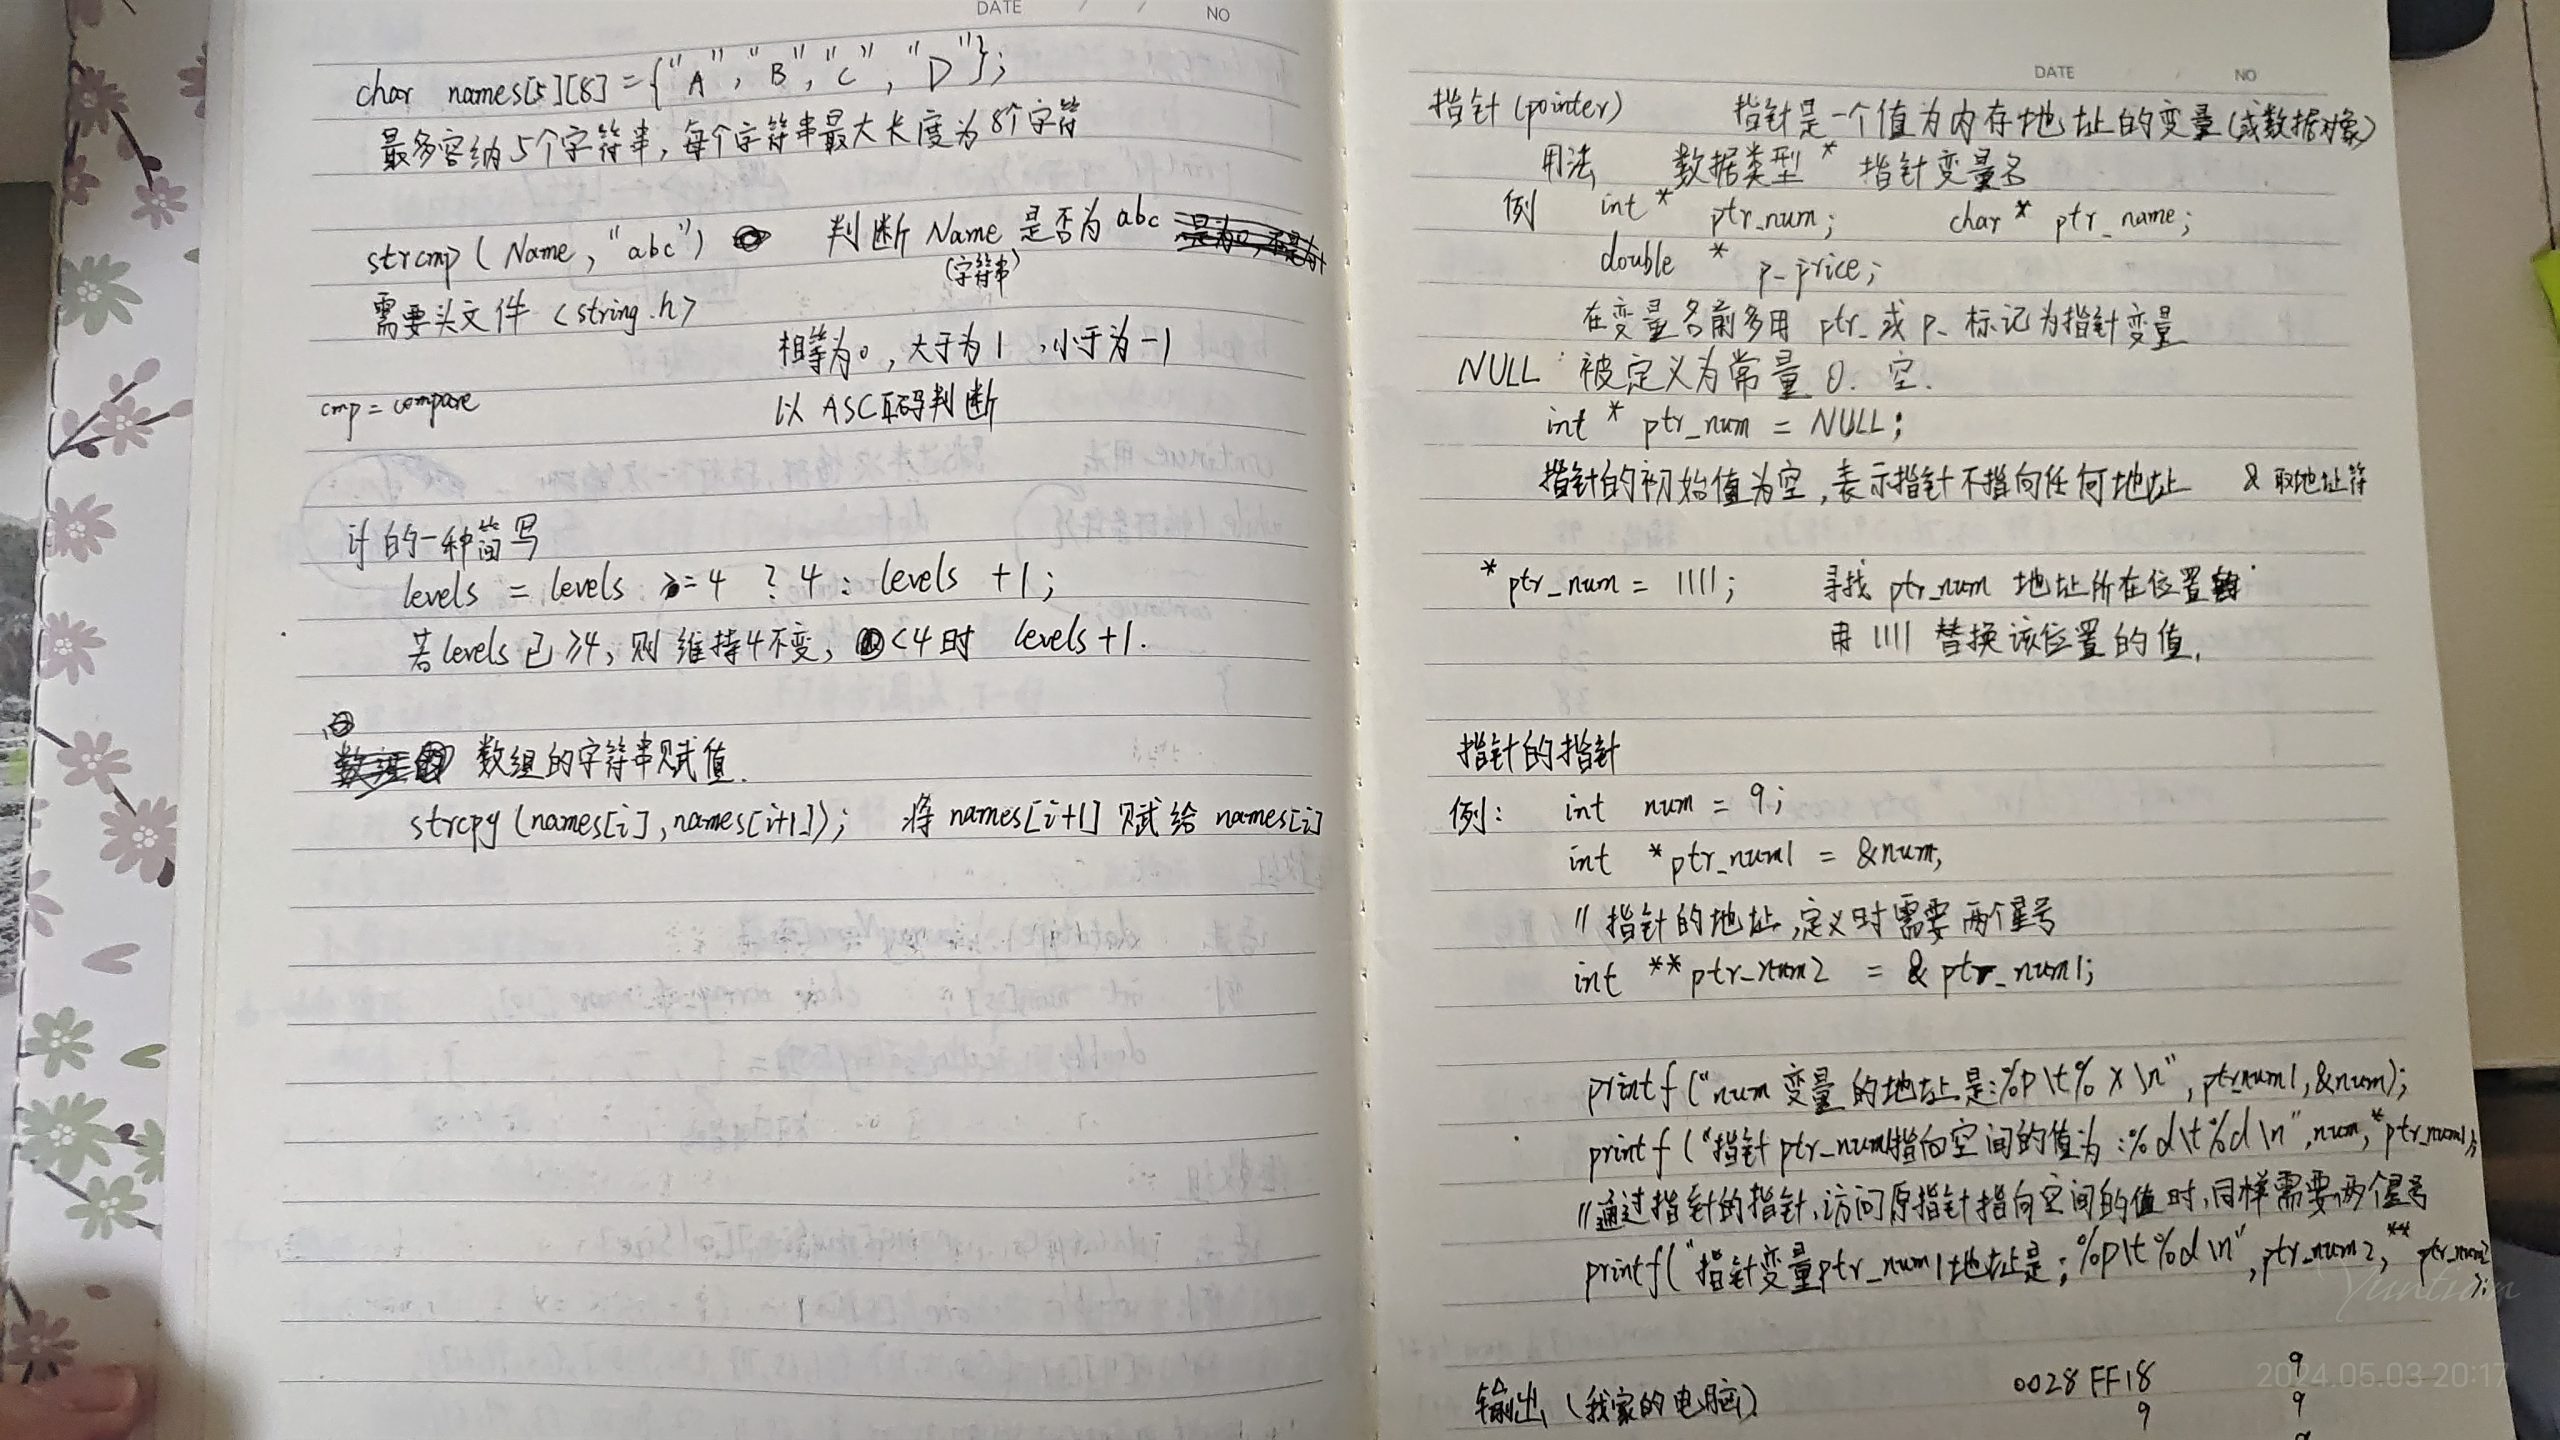 DATE / / NO
char names[5][8] = {"A", "B", "C", "D"};
最多容纳5个字符串,每个字符串最大长度为8个字符
strcmp(Name, "abc") 判断Name是否为abc
(字符串)
需要头文件 <string.h>
相等为0,大于为1,小于为-1
cmp = compare 以ASCII码判断
if的一种简写
levels = levels >= 4 ? 4 : levels +1;
若levels已≥4,则维持4不变,<4时 levels+1.
数组的字符串赋值.
strcpy(names[i],names[i+1]); 将names[i+1]赋给names[i]
DATE / NO
指针(pointer) 指针是一个值为内存地址的变量(或数据对象)
用法 数据类型 * 指针变量名
例 int * ptr_num; char * ptr_name;
double * p_price;
在变量名前多用 ptr_或p_标记为指针变量
NULL: 被定义为常量0.空.
int * ptr_num = NULL;
指针的初始值为空,表示指针不指向任何地址 & 取地址符
* ptr_num = 1111; 寻找ptr_num 地址所在位置
用1111替换该位置的值.
指针的指针
例: int num = 9;
int *ptr_num1 = &num;
//指针的地址,定义时需要两个星号
int **ptr_num2 = &ptr_num1;
printf("num变量的地址是:%p\t%x\n", ptr_num1, &num);
printf("指针ptr_num1指向空间的值为:%d\t%d\n",num,*ptr_num1);
//通过指针的指针,访问原指针指向空间的值时,同样需要两个星号
printf("指针变量ptr_num1地址是:%p\t%d\n",ptr_num2,**ptr_num2
);
Yuntum
输出(我家的电脑) 0028FF18 9
2024.05.03 20:17
9 9